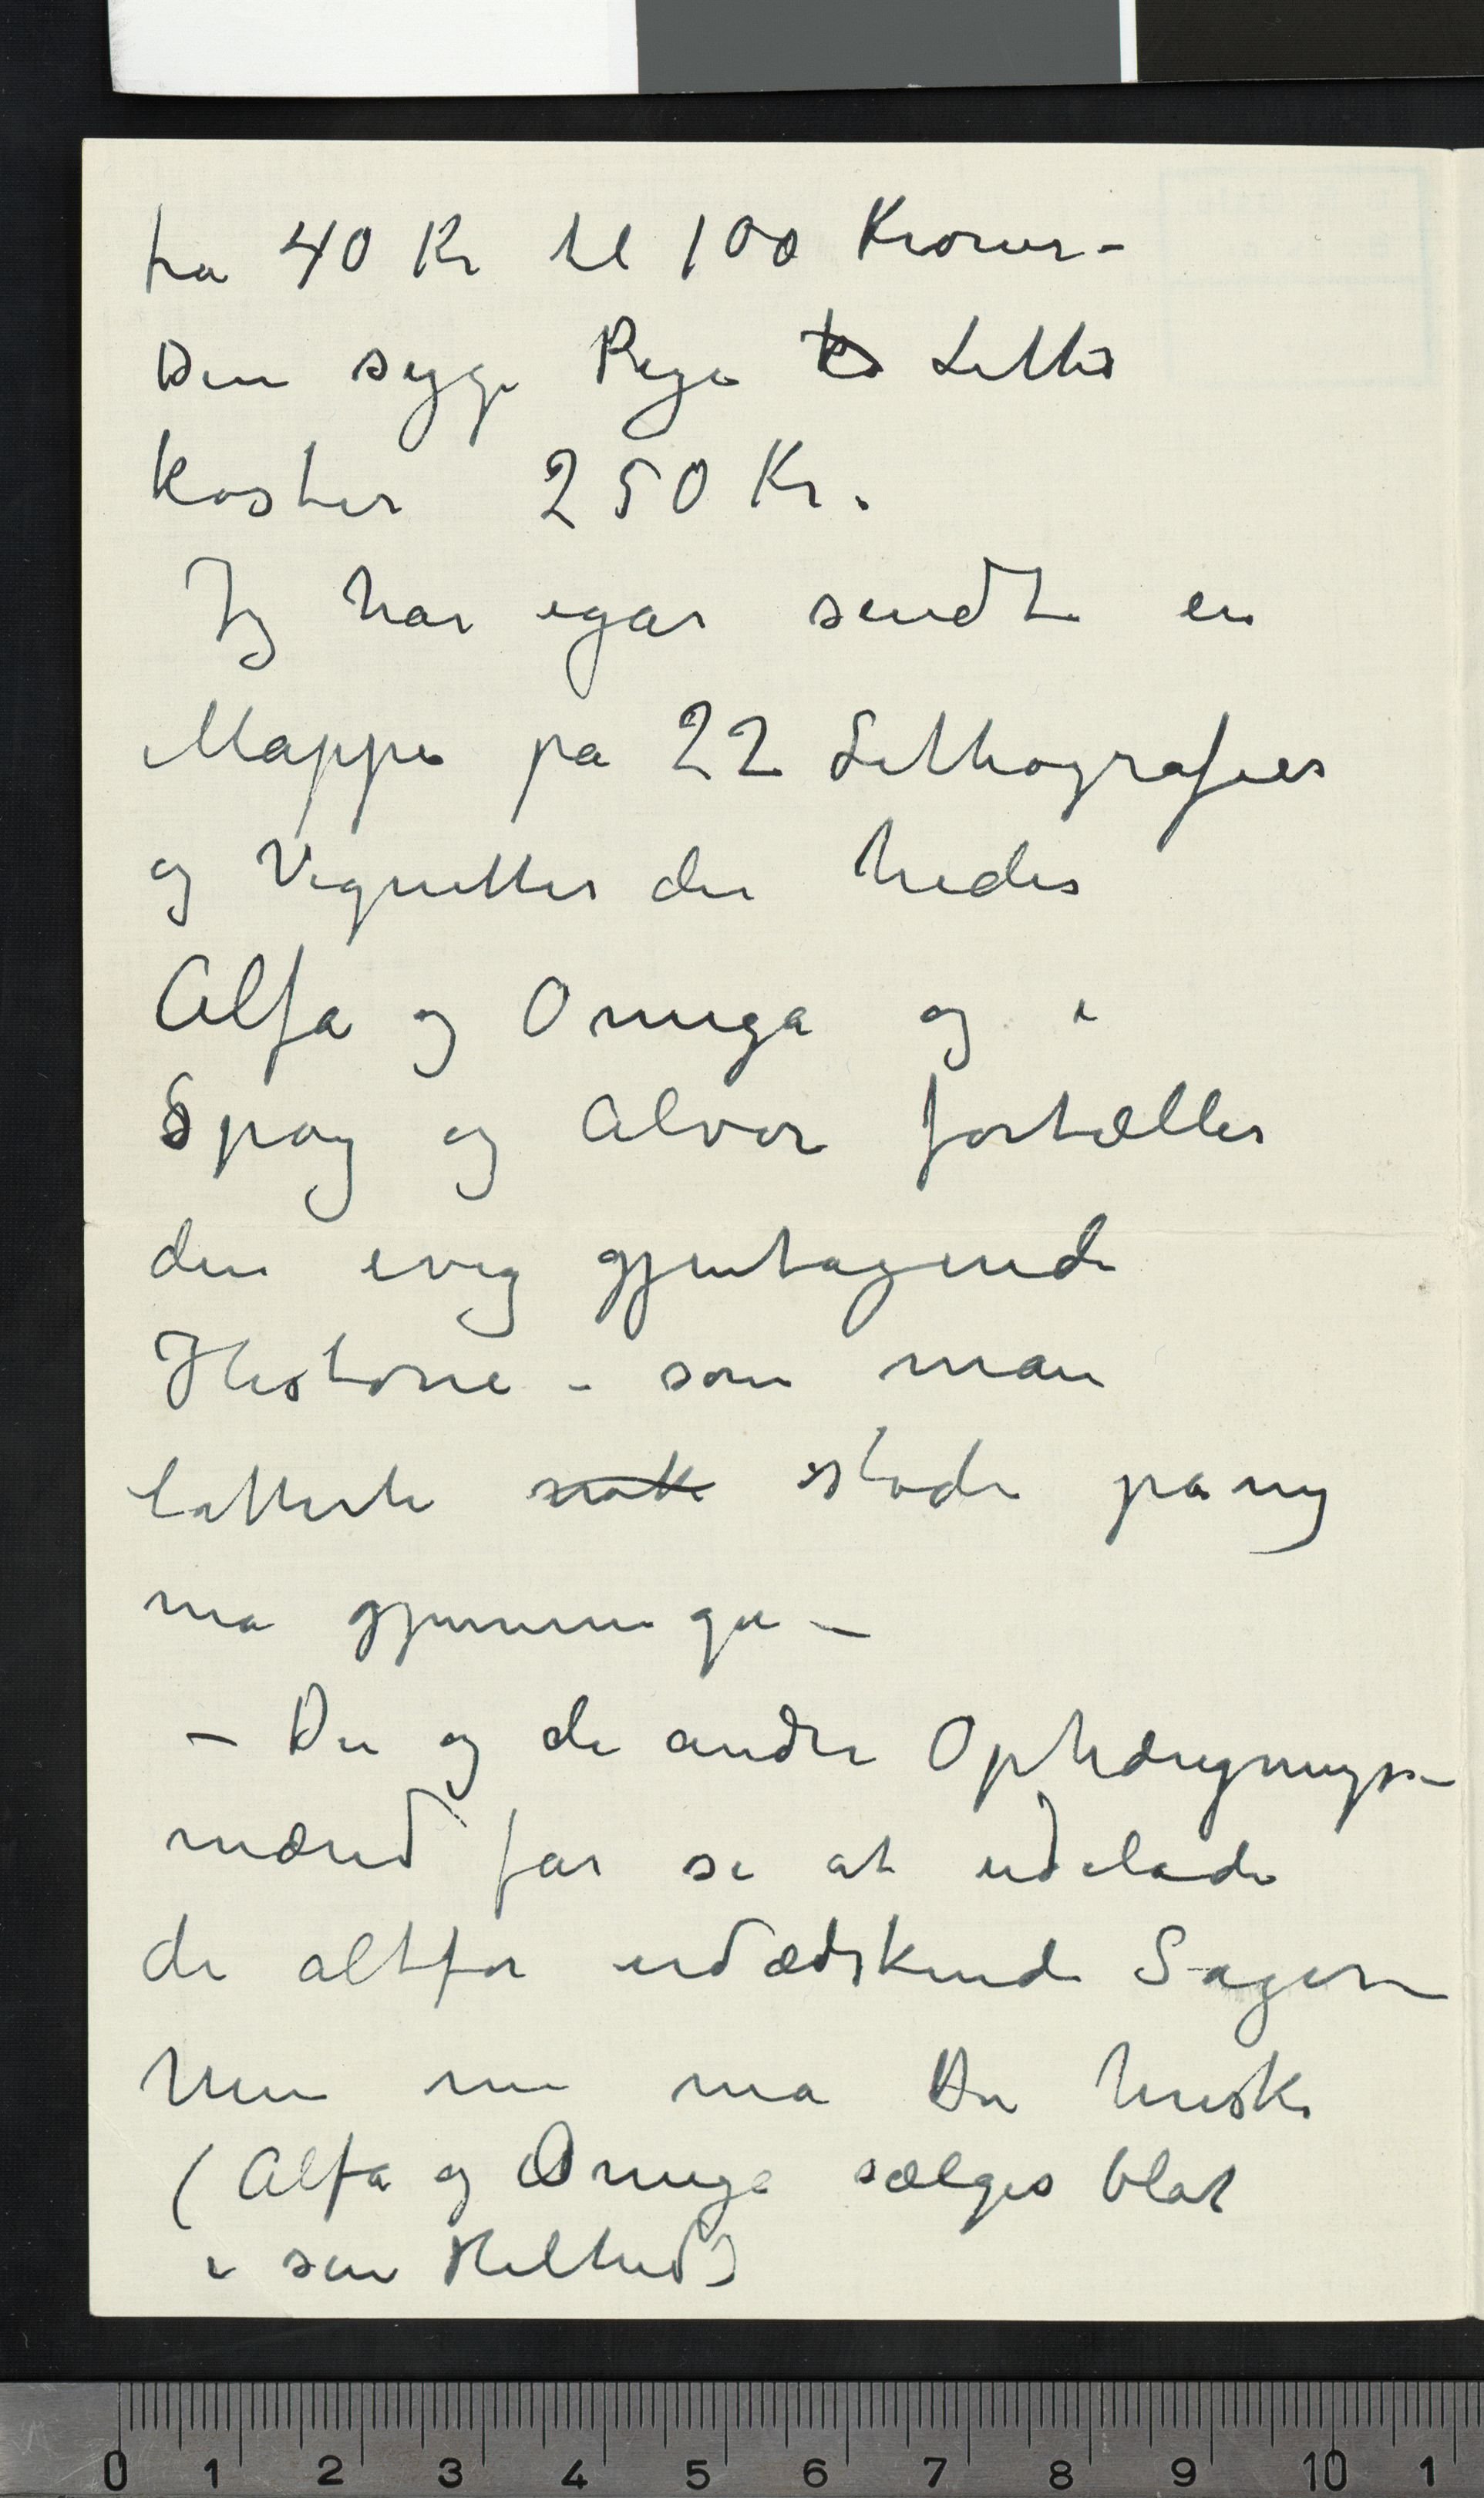 fra 40 Kr til 100 Kroner –
Den syge Pige Litho
koster 250 Kr.
Jeg har igår sendt en
Mappe på 22 Lithografier
og Vignetter der hedes
Alfa og Omega og i
Spøg og Alvor fortæller
den evig gjentagende
Historie – som man
støde på ny
må gjennemgå –
– Du og de andre Ophængnings-
mænd får se at udelade
de altfor udædskende Sager –
Men nu må Du huske
(Alfa og Omega sælges blot
i sin Helhed)
0 1 2 3 4 5 6 7 8 9 10 1